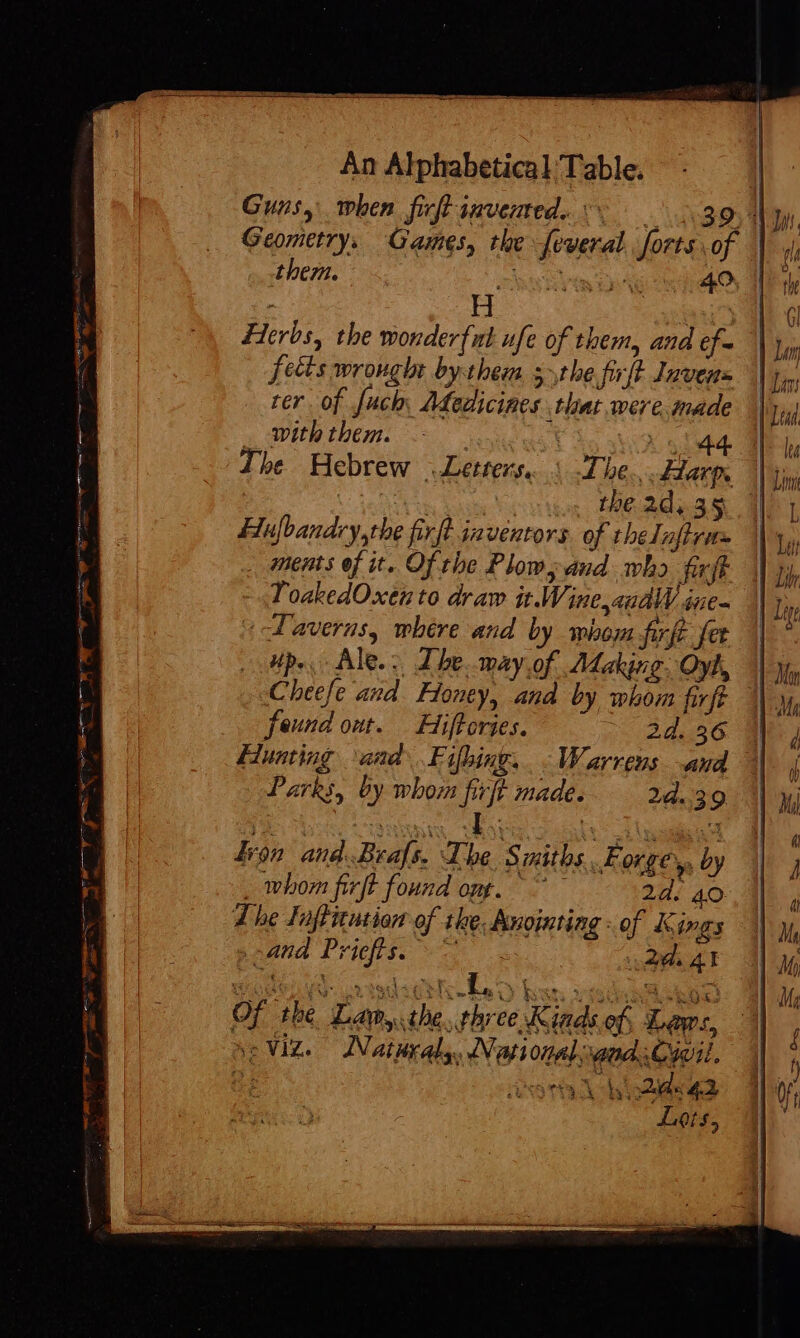 An Alphabetical Table.
Guns, when firſt invented. 39
Geometry. Games, the ſeveral ſorts of
them. 40
H
Herbs, the wonderful uſe of them, and ef-
fects wrought by them; the firſt Inven-
ter of ſuch Medicines that were made
with them. 44
The Hebrew Letters. The Harp.
the 2d. 35
Huſbandry, the firſt inventors of the Inſtru-
ments of it. Of the Plow, and who firſt
Yoaked Oxen to draw it. Wine, and Wine-
Taverns, where and by whom firſt ſet
up. Ale. The way of Making Oyl,
Cheeſe and Honey, and by whom firſt
found out. Hiſtories. 2d. 36
Hunting and Fiſhing. Warrens and
Parks, by whom firſt made. 2d. 39
I
Iron and Braſs. The Smiths Forge, by
whom firſt found out. 2d. 40
The Inſtitution of the Anointing of Kings
and Prieſts. 2d. 41
L
Of the Law, the three Kinds of Laws,
Viz. Natural, National and Civil.
2d. 42
Lots,